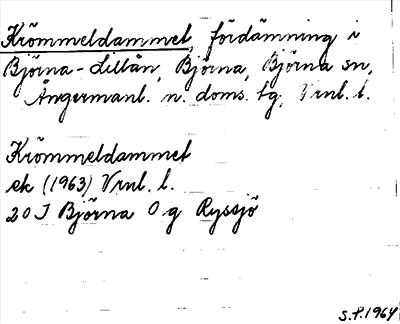 Krömmeldammet, fördämning i
Björna-Lillån, Björna, Björna sn,
Ångermanl. n. doms. tg, Vrnl. l.
Krömmeldammet
ek (1963) Vrnl. l.
20 J Björna O g Ryssjö
S.P. 1964